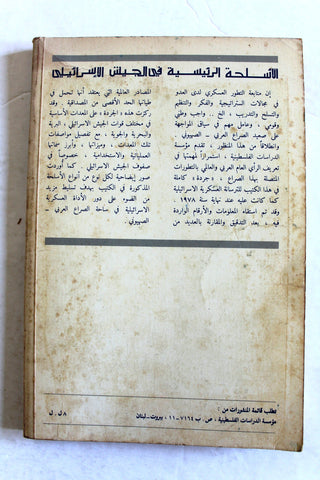 الأسلحة الرئيسية في الجيش الإسرائيلي
إن متابعة التطور العسكري لدى العدو
في مجالات الستراتيجية والفكر والتنظيم
والتسلح والتدريب ، الخ .. واجب وطني
وقومي ، وعامل مهم في سياق المواجهة
على صعيد الصراع العربي - الصهيوني .
وانطلاقا من هذا المنظور ، تقدم مؤسسة
الدراسات الفلسطينية ، استمرارا لمهمتها في
تعريف الرأي العام العربي والعالمي بالتطورات
المتصلة بهذا الصراع ، «جردة» كاملة
في هذا الكتيب للترسانة العسكرية الاسرائيلية
كما كانت عليه عند نهاية سنة ١٩٧٨ .
وقد تم استقاء المعلومات والأرقام الواردة
فيه ، بعد التدقيق والمقارنة بالعديد من
المصادر العالمية التي يعتقد أنها تحمل في
طياتها الحد الأقصى من المصداقية . وقد
ركزت هذه «الجردة» على المعدات الأساسية
في مختلف قوات الجيش الاسرائيلي ، البرية
والبحرية والجوية ، مع تفصيل مواصفات
تلك المعدات ، وميزاتها ، وأبرز سماتها
العملياتية والاستخدامية ، خصوصا في
صفوف الجيش الاسرائيلي . كما تم ادراج
صور إيضاحية لكل نوع من أنواع الأسلحة
المذكورة في الكتيب بهدف تسليط مزيد
من الضوء على دور الأداة العسكرية
الاسرائيلية في ساحة الصراع العربي -
الصهيوني .
تطلب قائمة المنشورات من :
مؤسسة الدراسات الفلسطينية ، ص. ب ٧١٦٤ - ١١ ، بيروت - لبنان
٨ ل. ل